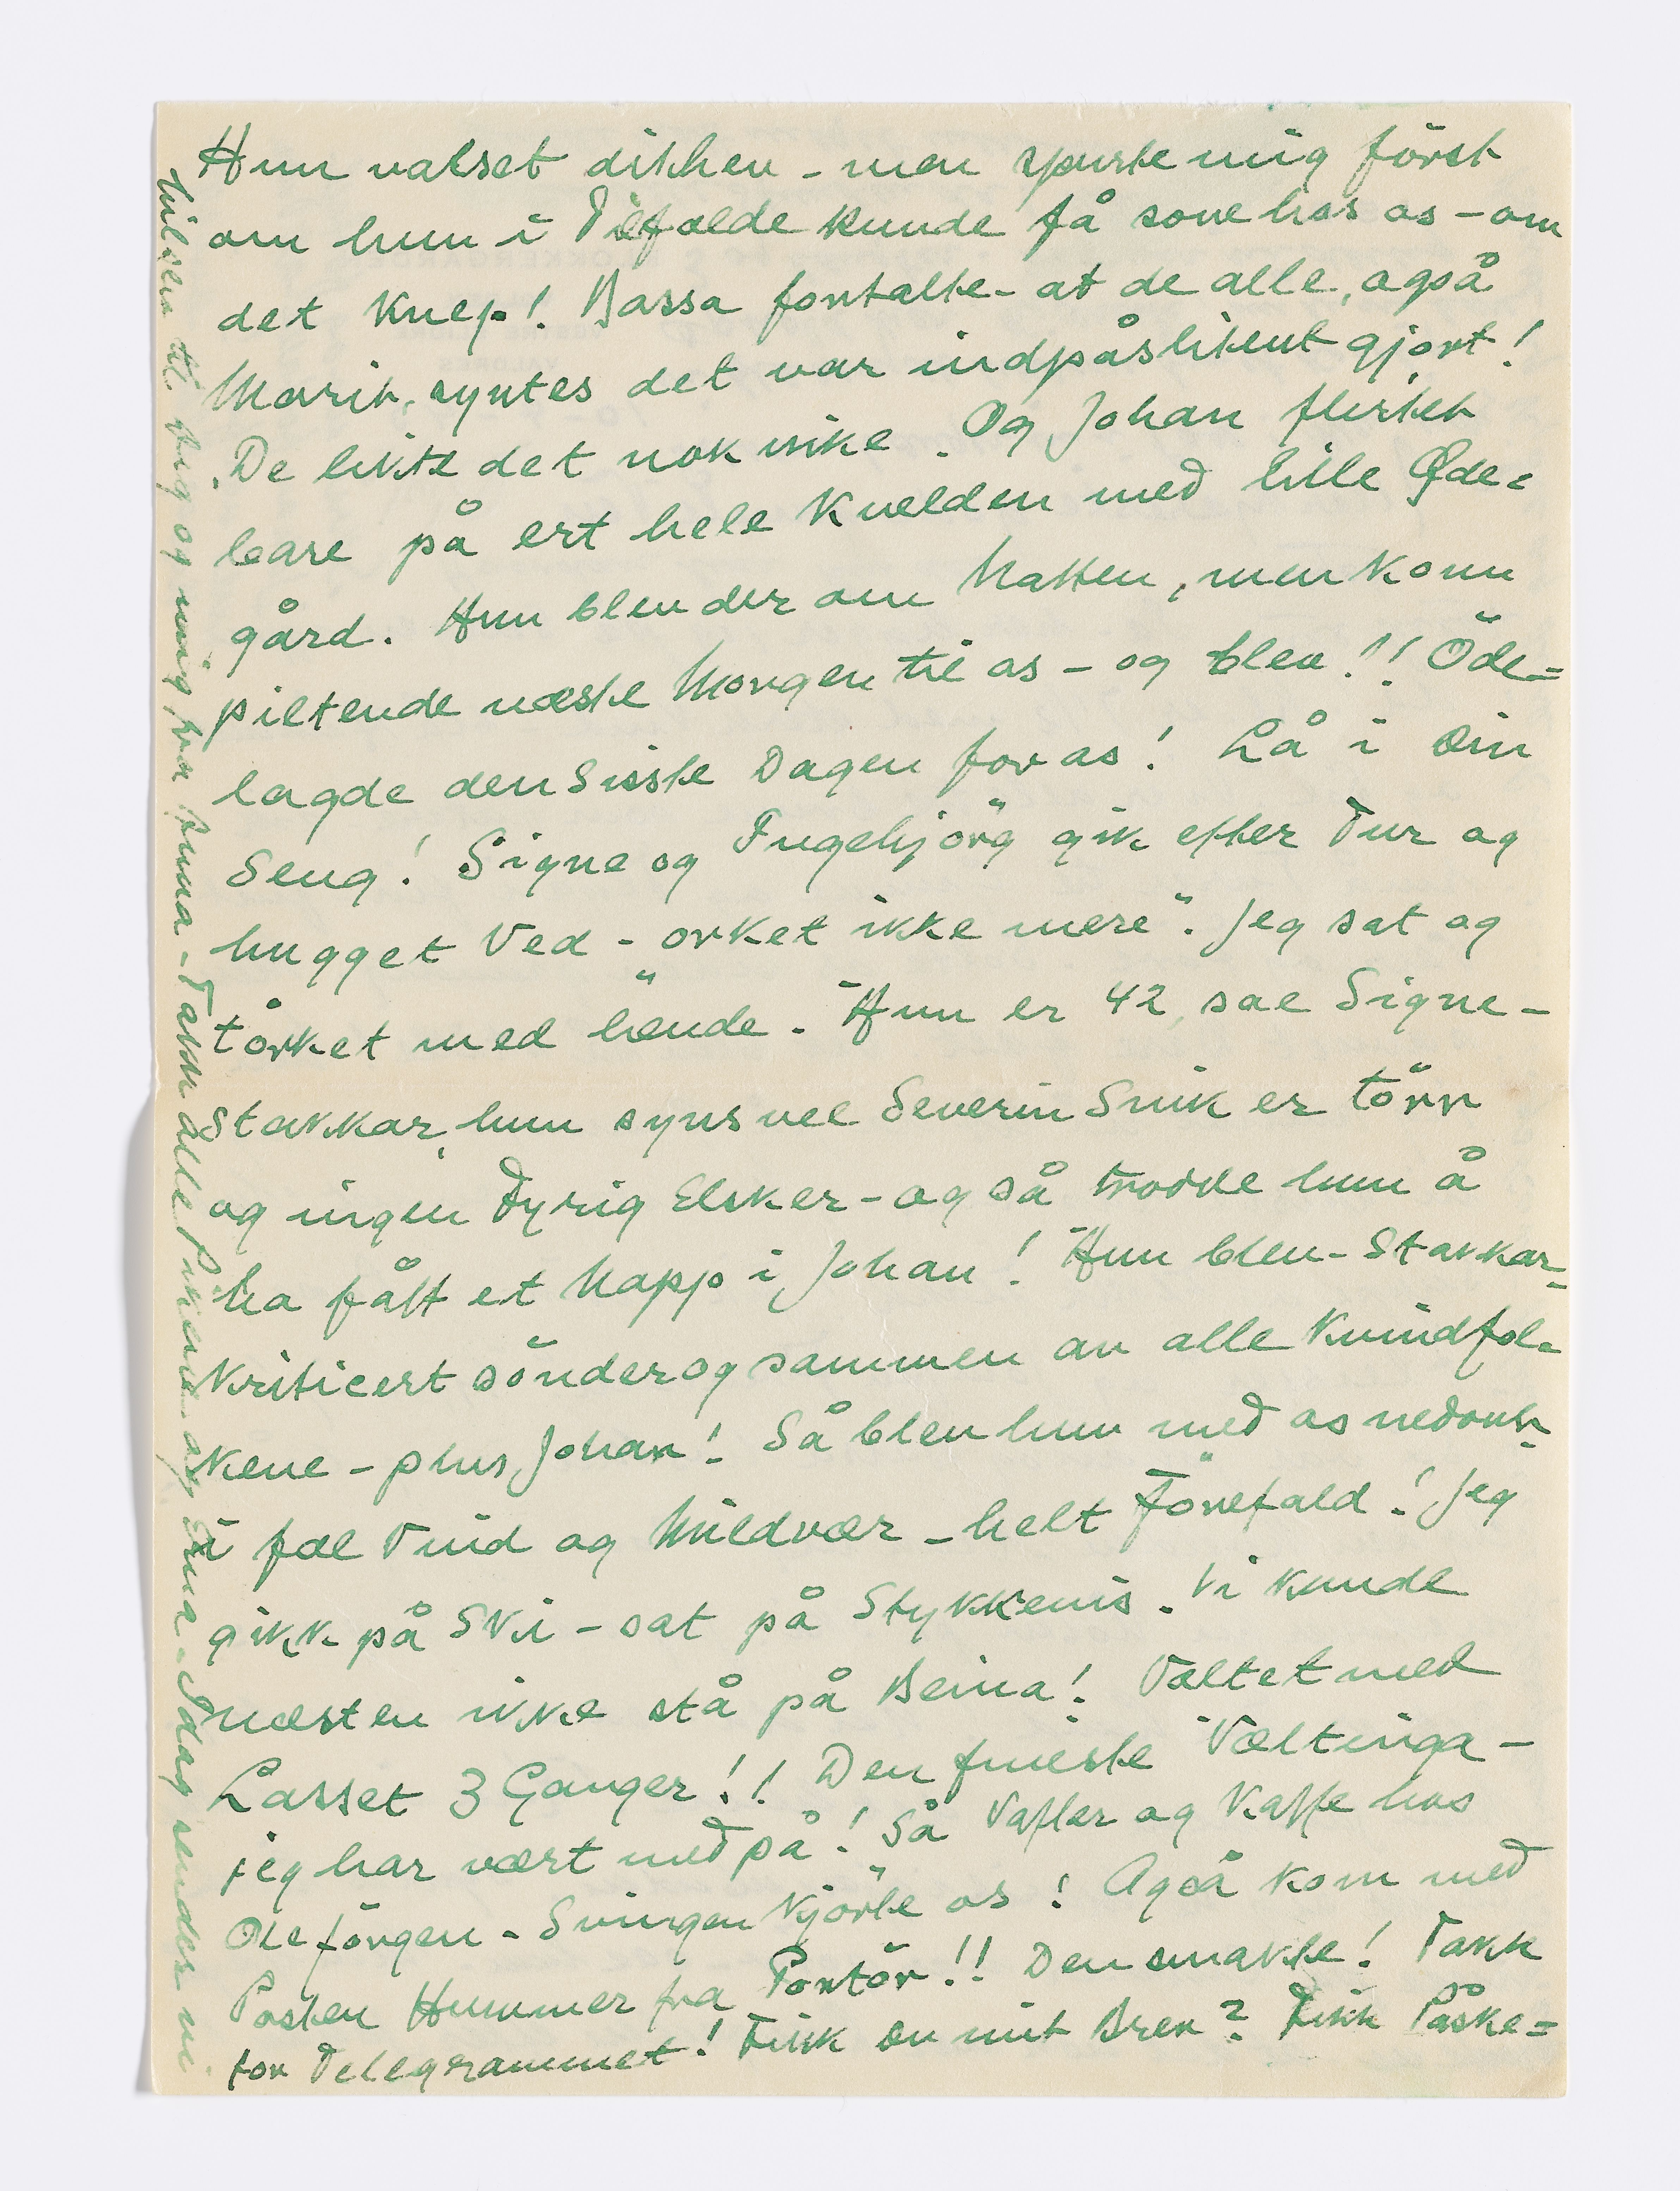 Hun valset dithen - men spurte mig først
om hun i Tilfælde kunde få sove hos os - om
det knep! Bassa fortalte - at de alle, også
Marit, syntes det var indpåslitent gjort!
De likte det nok ikke. Og Johan flirtet
på ert hele Kvelden med lille Øde-
gård. Hun blev der om Natten, men kom
piltende næste Morgen til os - og blev!! Öde=
lagde den Sisste Dagen for os! Lå i Din
Seng! Signe og Ingebjörg gik efter Tur og
hugget Ved - "orket ikke mere". Jeg sat og
törket med hende. "Hun er 42, sae Signe -
Stakkar, hun syns vel Severin Snik er törr
og ingen Fyrig Elsker - og så trodde hun å
ha fått et Napp i Johan! "Hun blev - Stakkar -
kriticert sönder og sammen av alle Kvindfol-
kene - plus Johan! Så blev hun med os nedover
i fæl Vind og Mildvær - helt Förefald! Jeg
gikk på Ski - sat på Stykkevis. Vi kunde
næsten ikke stå på Beina! Væltet med
Lasset 3 Ganger!! Den fineste Væltinga -
jeg har vært med på! Så Vafler og Kaffe hos
Ole Jörgen. Svingen kjörte os! Også kom med
Posten Hummer fra Portör!! Den smakte! Takk
for Telegrammet! Fikk Du mit Brev? Fikk Påske=
Hilsen til Dig og mig fra - Takk alle Pikene og - Idag sender vi